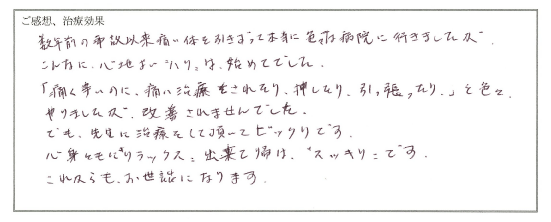 ご感想、治療効果
数年前の事故以来痛い体を引きずって本当に色々な病院に行きましたが、
こんなに、心地よい"ハリ"は、始めてでした。
「痛く辛いのに、痛い治療をされたり、押したり、引っ張ったり。」と色々、
やりましたが、改善されませんでした。
でも、先生に治療をして頂いてビックリです。
心身ともにリラックス。出来て帰は、"スッキリ"です。
これからも、お世話になります。